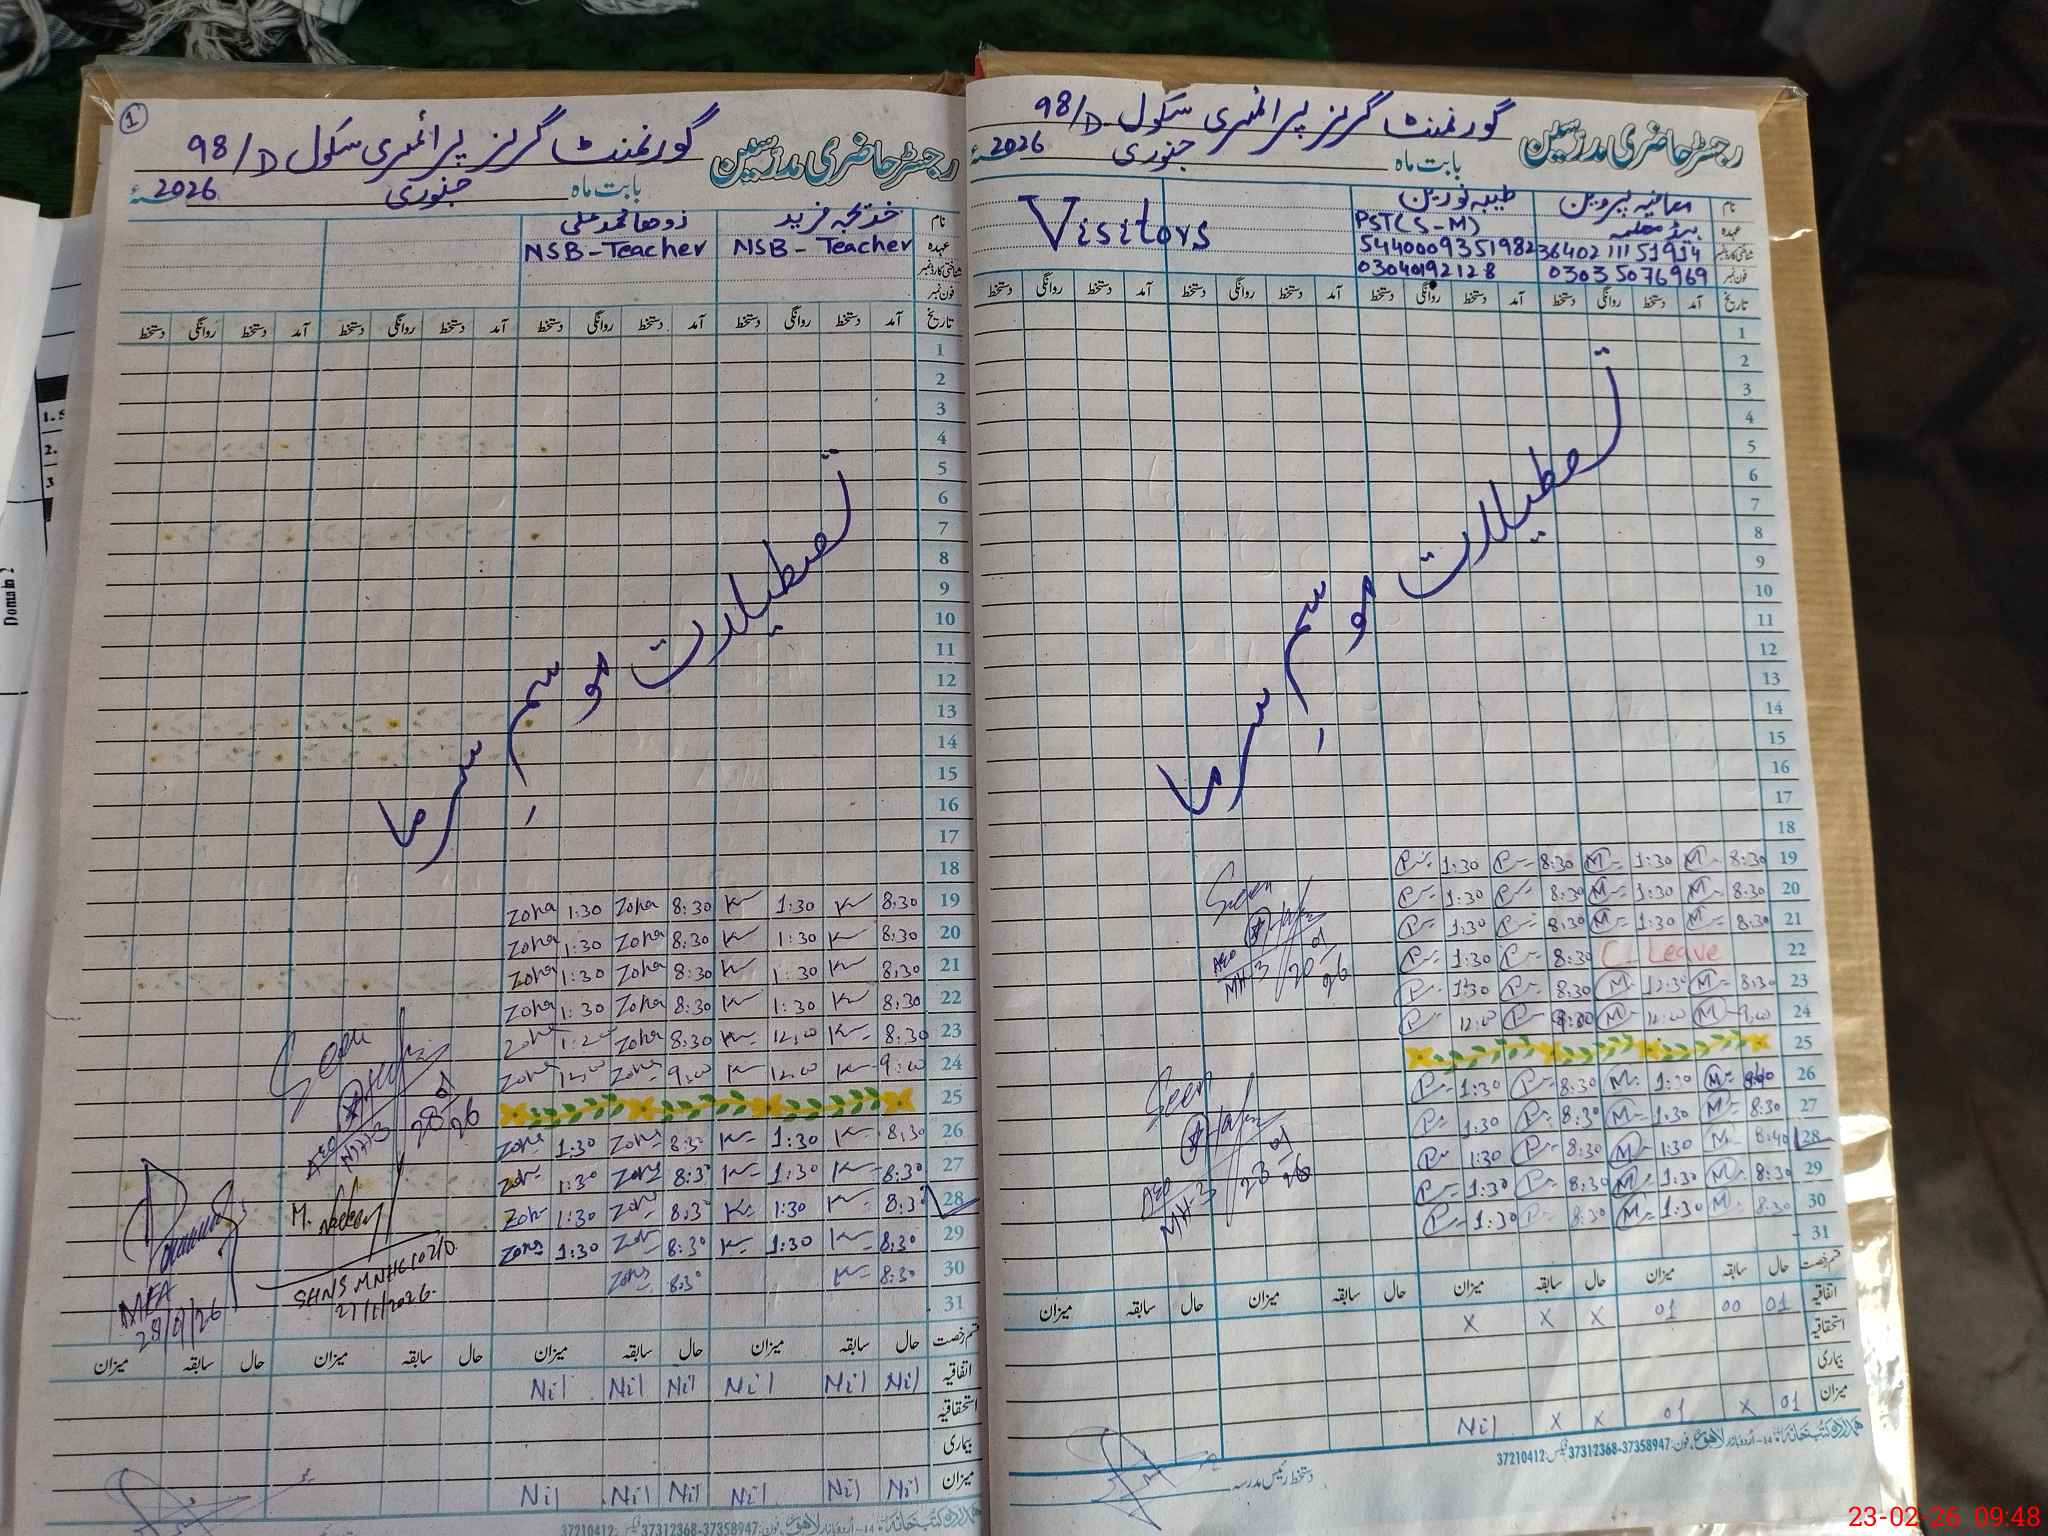 1
گورنمنٹ گرلز پرائمری سکول 98/D
رجسٹر حاضری مدرسین
بابت ماہ جنوری 2026ء
نام خدیجہ فرید زوھا محمد علی
عہدہ NSB - Teacher NSB - Teacher
شناختی کارڈ نمبر
فون نمبر
تاریخ آمد دستخط روانگی دستخط آمد دستخط روانگی دستخط آمد دستخط روانگی دستخط آمد دستخط روانگی دستخط
1
2
3
4
5
6
7
8
9
10
11
12
13
14
15
16
17
18
تعطیلات موسم سرما
19 8:30 1:30 8:30 Zoha 1:30 Zoha
20 8:30 1:30 8:30 Zoha 1:30 Zoha
21 8:30 1:30 8:30 Zoha 1:30 Zoha
22 8:30 1:30 8:30 Zoha 1:30 Zoha
23 8:30 12:00 8:30 Zoha
24 9:00 12:00 9:00 12:00
25
26 8:30 1:30 8:30 1:30
27 8:30 1:30 8:30 1:30
28 8:30 1:30 8:30 1:30
29 8:30 1:30 8:30 1:30
30 8:30 8:30
31
Seen
AEO
M. Nadeem
27/1/2026
MEA
28/1/26
قسم رخصت حال سابقہ میزان حال سابقہ میزان حال سابقہ میزان حال سابقہ میزان
اتفاقیہ Nil Nil Nil Nil Nil Nil
استحقاقیہ
بیماری
میزان Nil Nil Nil Nil Nil Nil
37210412 37312368-37358947
گورنمنٹ گرلز پرائمری سکول 98/D
رجسٹر حاضری مدرسین
بابت ماہ جنوری 2026ء
نام پروین طیبہ نورین Visitors
عہدہ ہیڈ معلمہ PST(S-M)
شناختی کارڈ نمبر 5440009351982
فون نمبر 03035076969 03040192128
تاریخ آمد دستخط روانگی دستخط آمد دستخط روانگی دستخط آمد دستخط روانگی دستخط آمد دستخط روانگی دستخط
1
2
3
4
5
6
7
8
9
10
11
12
13
14
15
16
17
18
تعطیلات موسم سرما
19 8:30 M 1:30 M 8:30 P 1:30 P
20 8:30 M 1:30 M 8:30 P 1:30 P
21 8:30 M 1:30 M 8:30 P 1:30 P
22 C_Leave 8:30 P 1:30 P
23 8:30 M 12:30 M 8:30 P 1:30 P
24 9:00 M 12:00 M P 12:00 P
25
26 M M 8:30 P 1:30 P
27 8:30 M 1:30 M 8:30 P 1:30 P
28 8:40 M 1:30 M 8:30 P 1:30 P
29 8:30 M 1:30 M 8:30 P 1:30 P
30 8:30 M 1:30 M 8:30 P 1:30 P
31
Seen
AEO
Seen
AEO
قسم رخصت حال سابقہ میزان حال سابقہ میزان حال سابقہ میزان حال سابقہ میزان
اتفاقیہ 01 00 01 X X X
استحقاقیہ
بیماری
میزان 01 X 01 X X Nil
37210412 37312368-37358947
دستخط رئیس مدرسہ
1.
2.
3
Domain 2
23-02-26 09:48